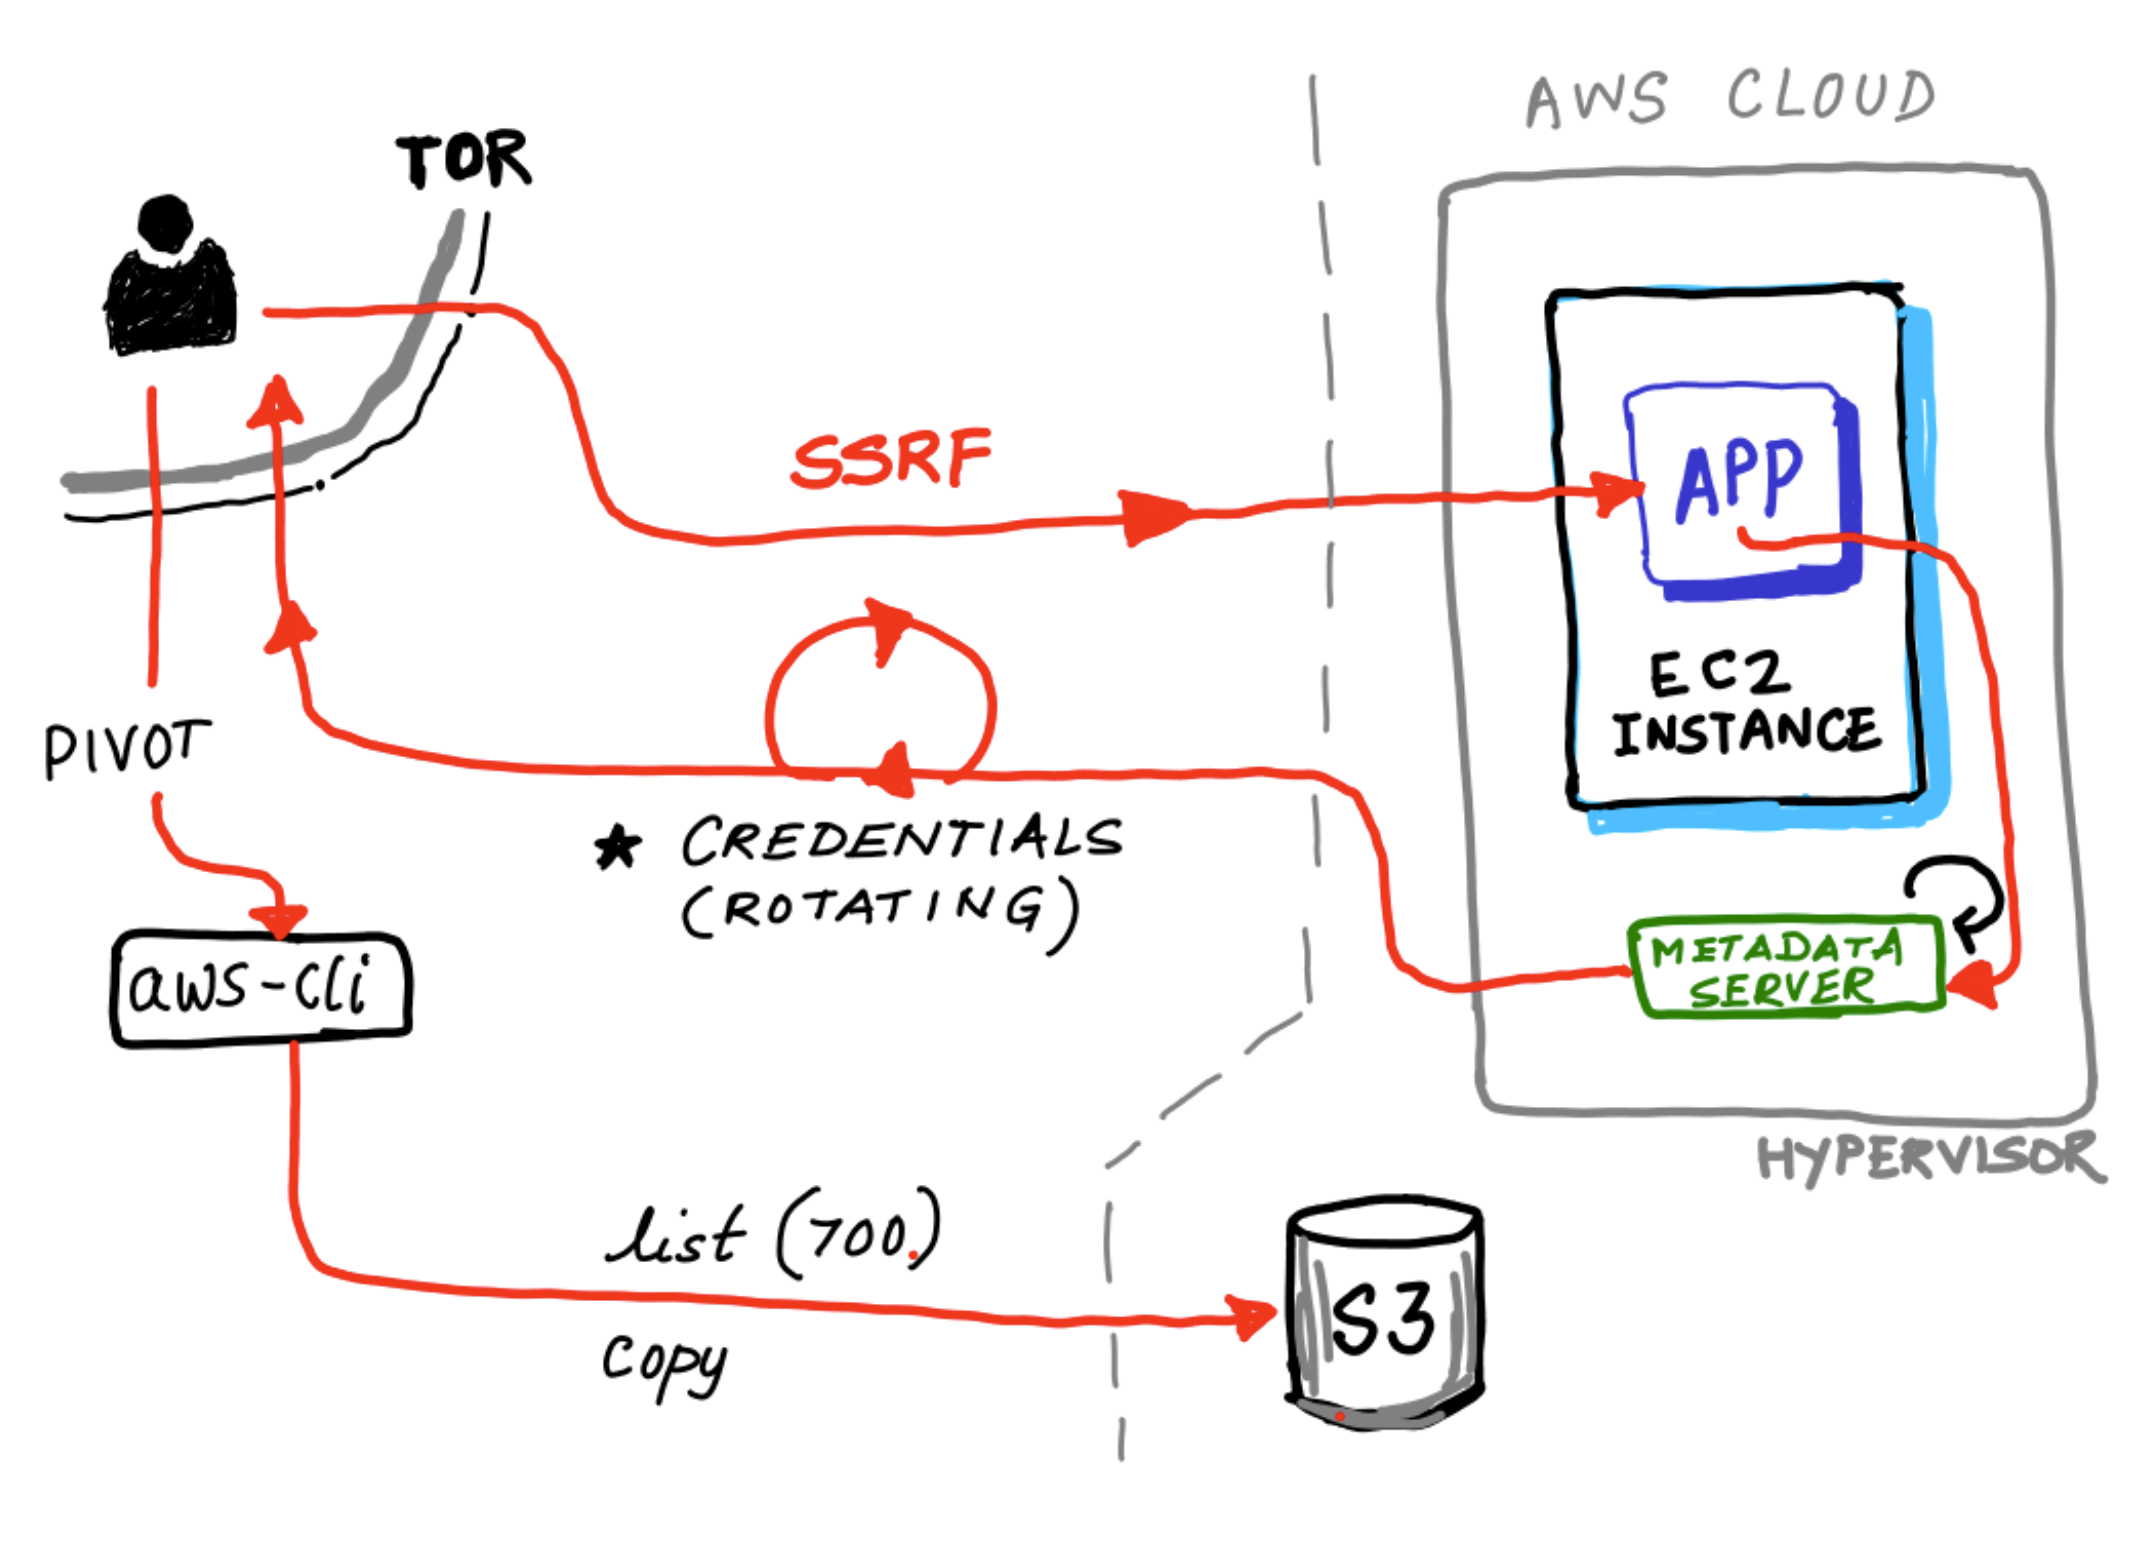 AWS CLOUD
TOR
SSRF
APP
EC2
INSTANCE
PIVOT
* CREDENTIALS
(ROTATING)
METADATA
SERVER
aws-cli
HYPERVISOR
list (700.)
copy
S3